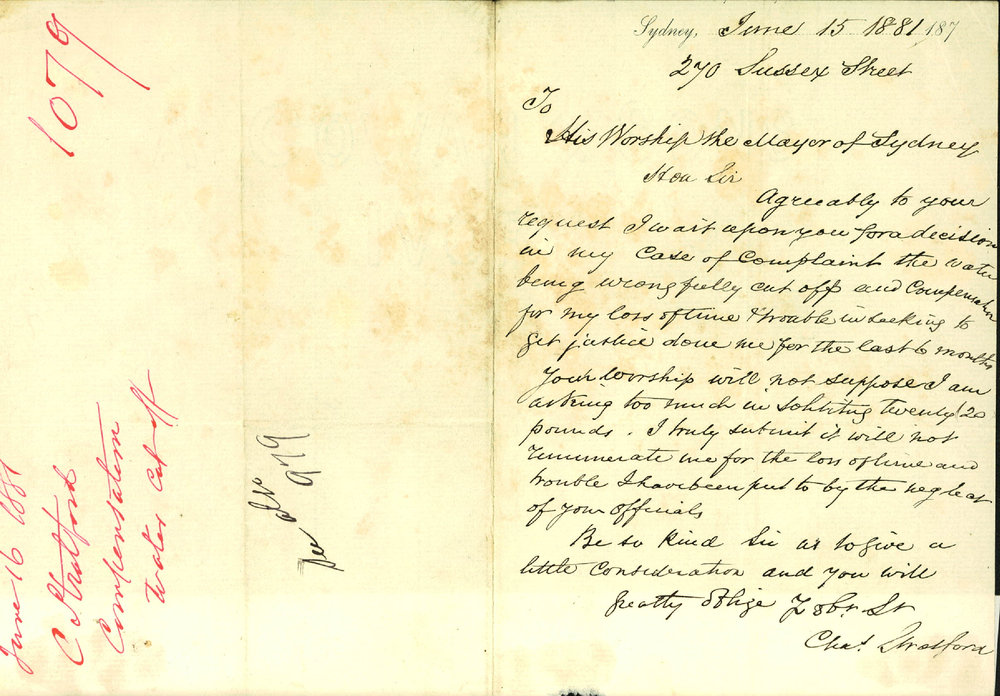 1079
June 16 1881
C Stratford
Compensation
Water Cut off
979
Sydney, June 15 1881 187
270 Sussex Street
To
His Worship the Mayor of Sydney
Hon Sir
Agreeably to your
request I wait upon you for a decision
in my Case of Complaint the water
being wrongfully cut off and Compensation
for my loss of time & trouble in seeking to
get justice done me for the last 6 months
Your worship will not suppose I am
asking too much in soliciting twenty/20
pounds. I truly submit it will not
remunerate me for the loss of time and
trouble I have been put to by the neglect
of your officials
Be so kind Sir as to give a
little consideration and you will
greatly oblige Y obt. St
Chas. Stratford